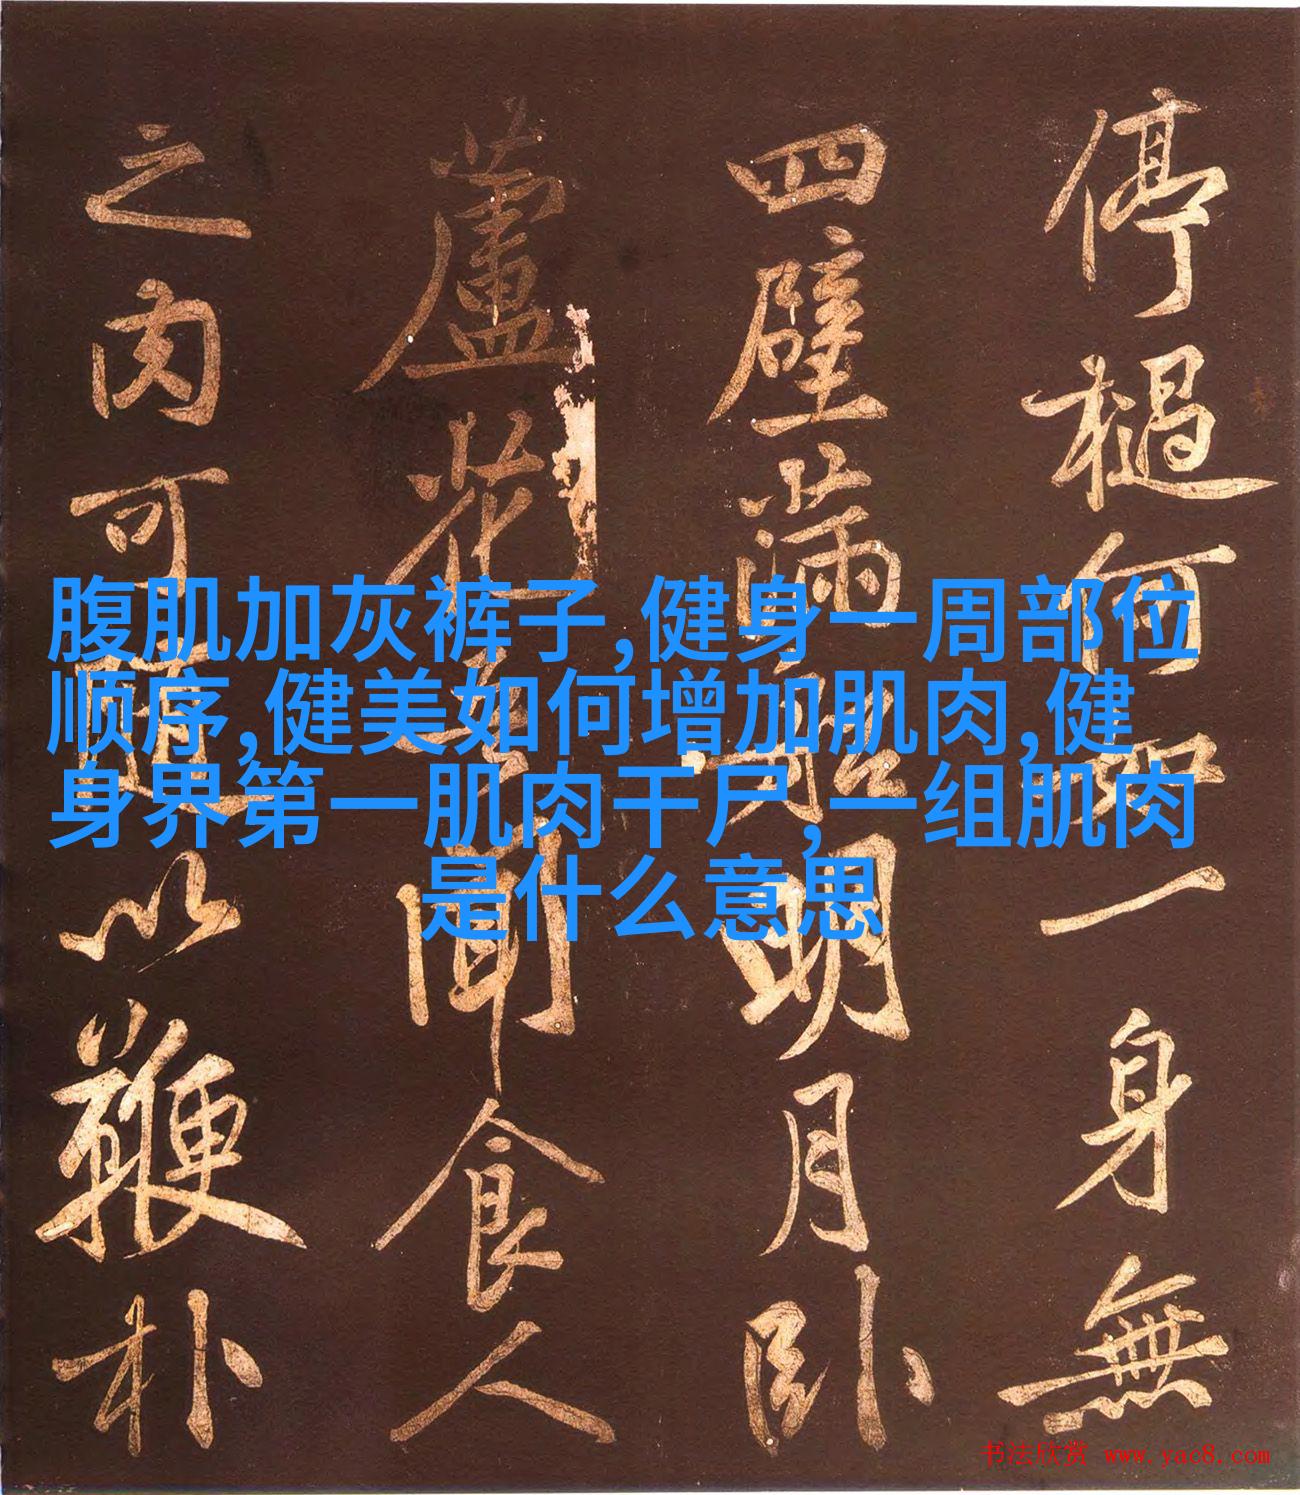 停檛何一身無
四壁滿船明月卧
蘆花聞食人
之肉可以鞭朴
腹肌加灰裤子,健身一周部位
顺序,健美如何增加肌肉,健
身界第一肌肉干尸,一组肌肉
是什么意思
书法欣赏 www.yac8.com